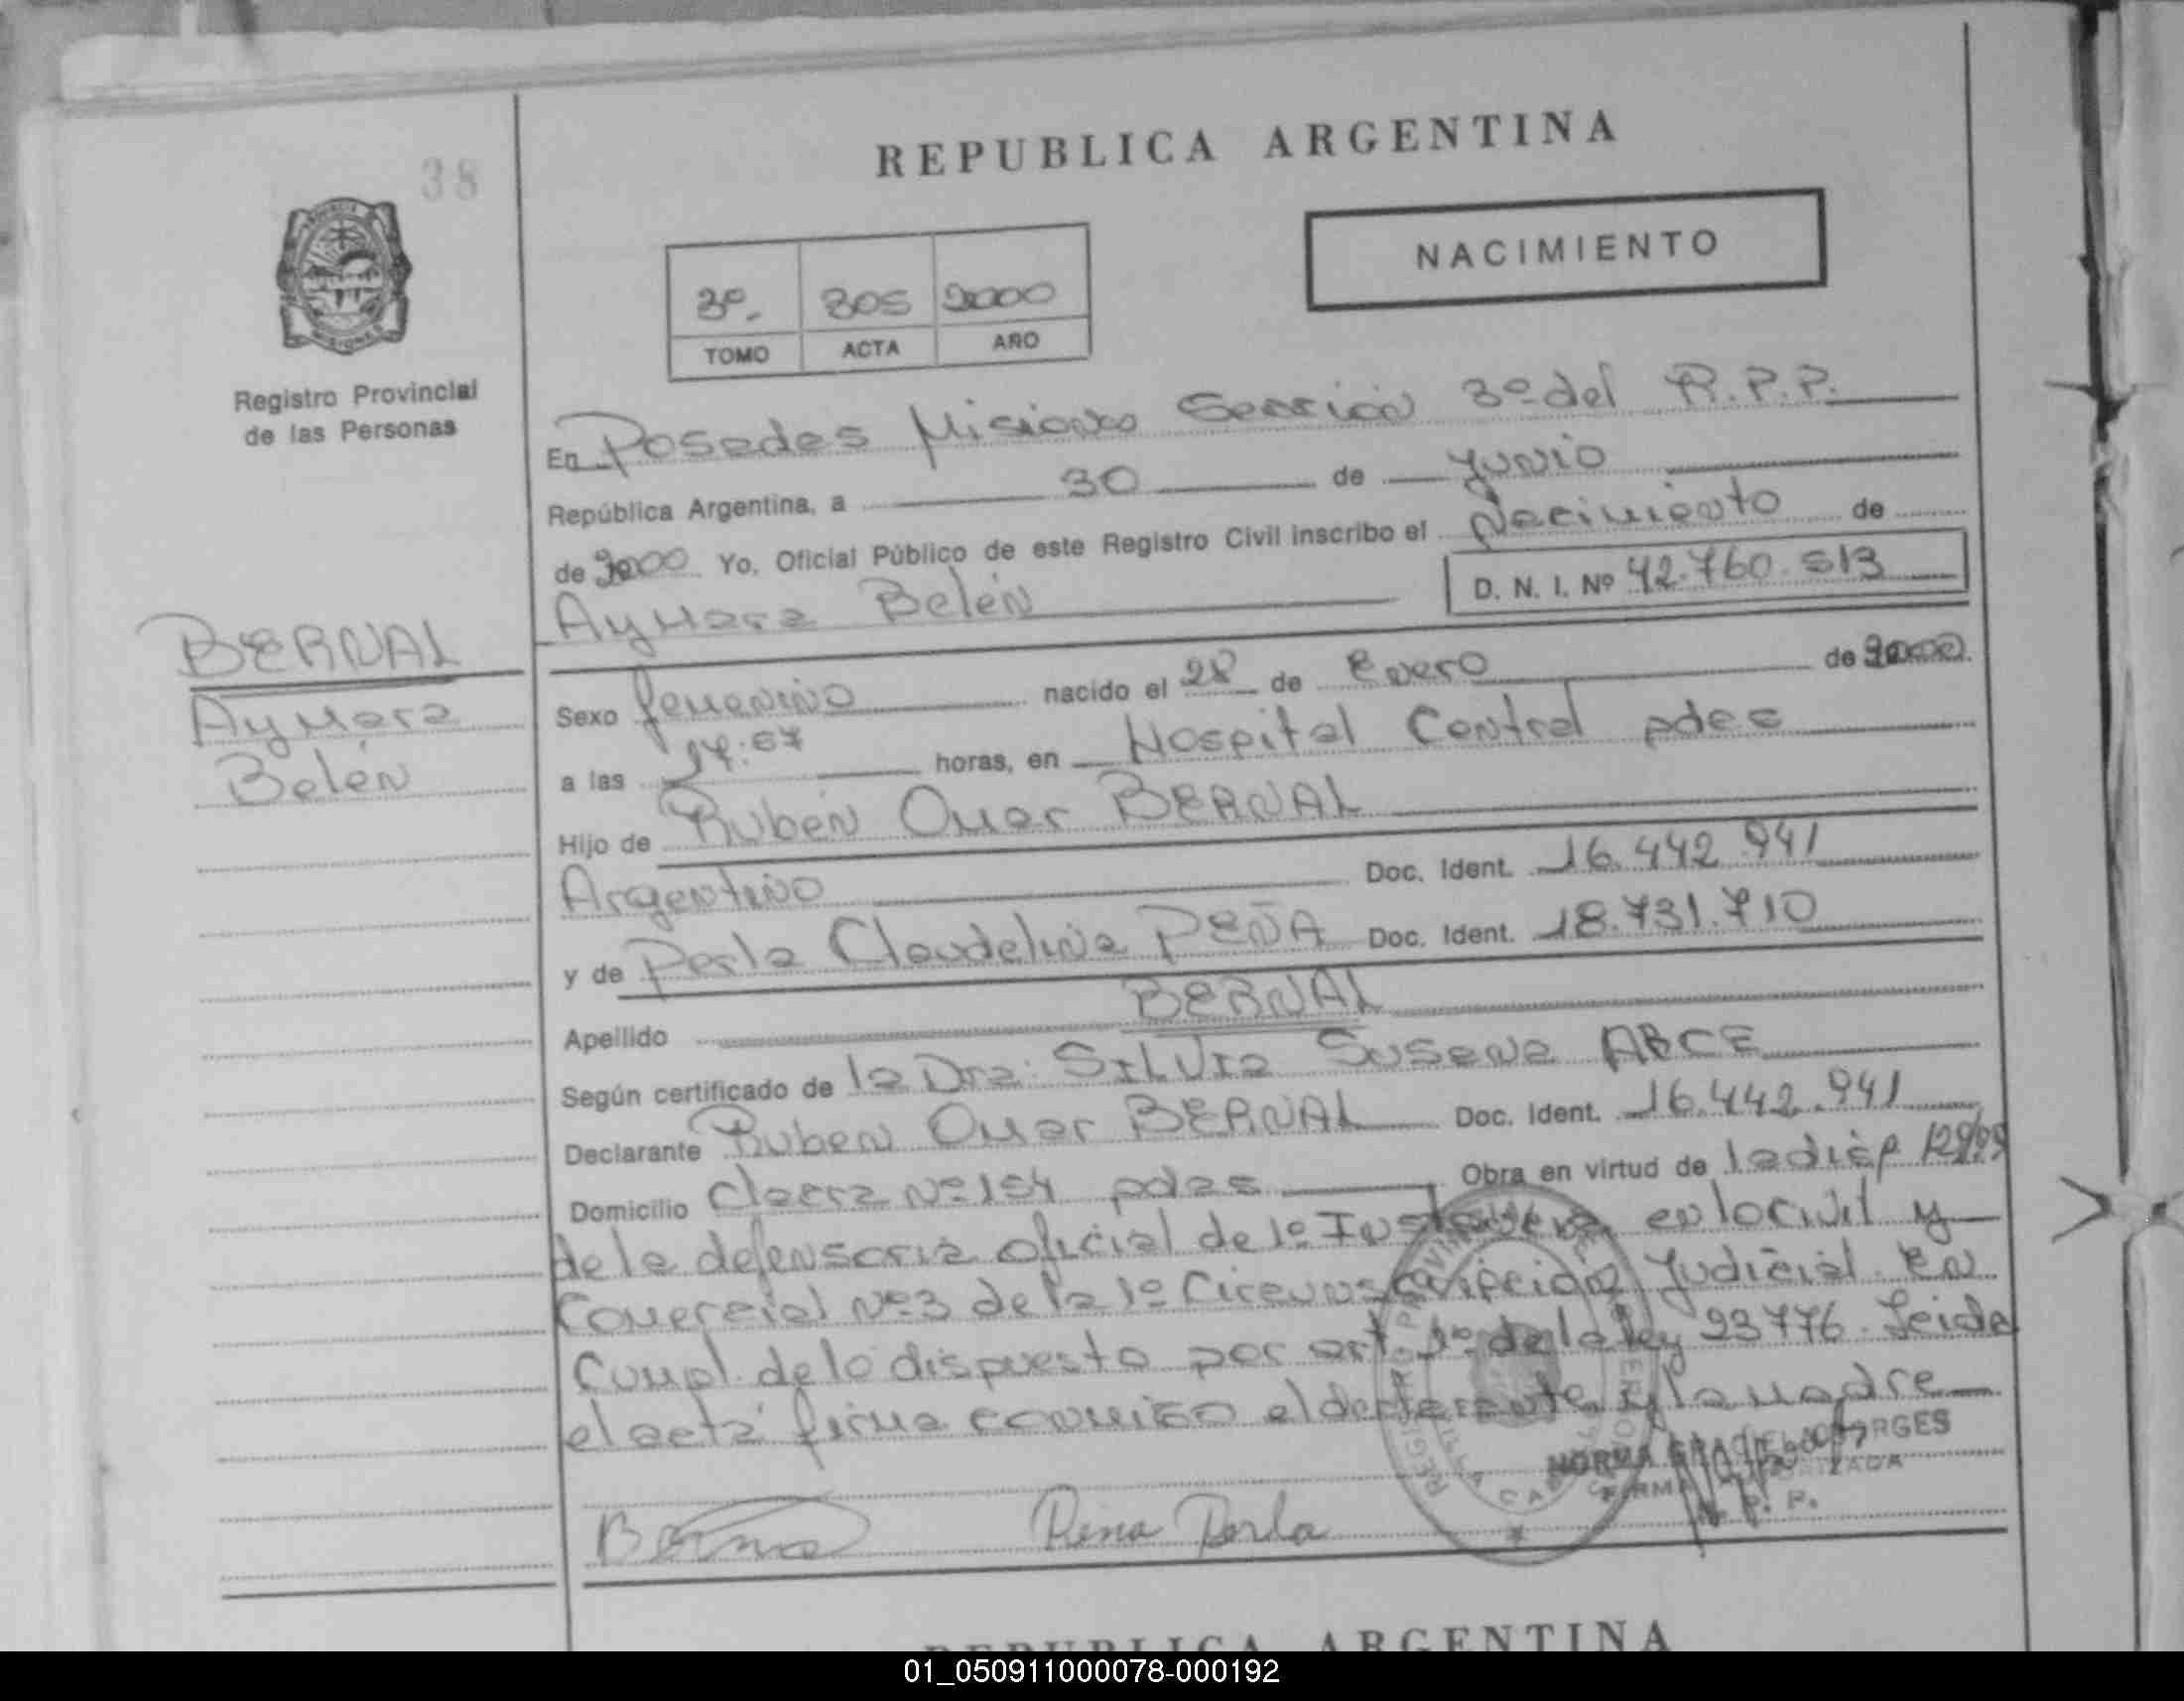 REPUBLICA ARGENTINA
38
NACIMIENTO
3º. 305 2000
TOMO ACTA AÑO
Registro Provincial
de las Personas
En Posadas Misiones Sección 3º del R.P.P.
República Argentina, a 30 de Junio
de 2000 Yo, Oficial Público de este Registro Civil inscribo el Nacimiento de
Aymara Belén D. N. I. Nº 42.760.513
BERNAL
Aymara
Belén
Sexo femenino nacido el 28 de Enero de 2000
a las horas, en Hospital Central pdas
Hijo de Rubén Omar BERNAL
Argentino Doc. Ident. 16.442.941
y de Perla Claudelina PEÑA Doc. Ident. 18.731.710
Apellido BERNAL
Según certificado de la Dra. SILVIA Susana ARCE
Declarante Ruben Omar BERNAL Doc. Ident. 16.442.941
Domicilio Nº 154 pdas Obra en virtud de la disp
de la defensoria oficial de 1º Instancia en lo civil y
Comercial Nº 3 de la 1º Circunscripcion Judicial. En
Cumpl. de lo dispuesto por art. 1º de la ley 23776. Leida
el acta firma conmigo el declarante y la madre
NORMA GRACIELA BORGES
FIRMA AUTORIZADA
R. P. P.
Pena Perla
REPUBLICA ARGENTINA
01_050911000078-000192